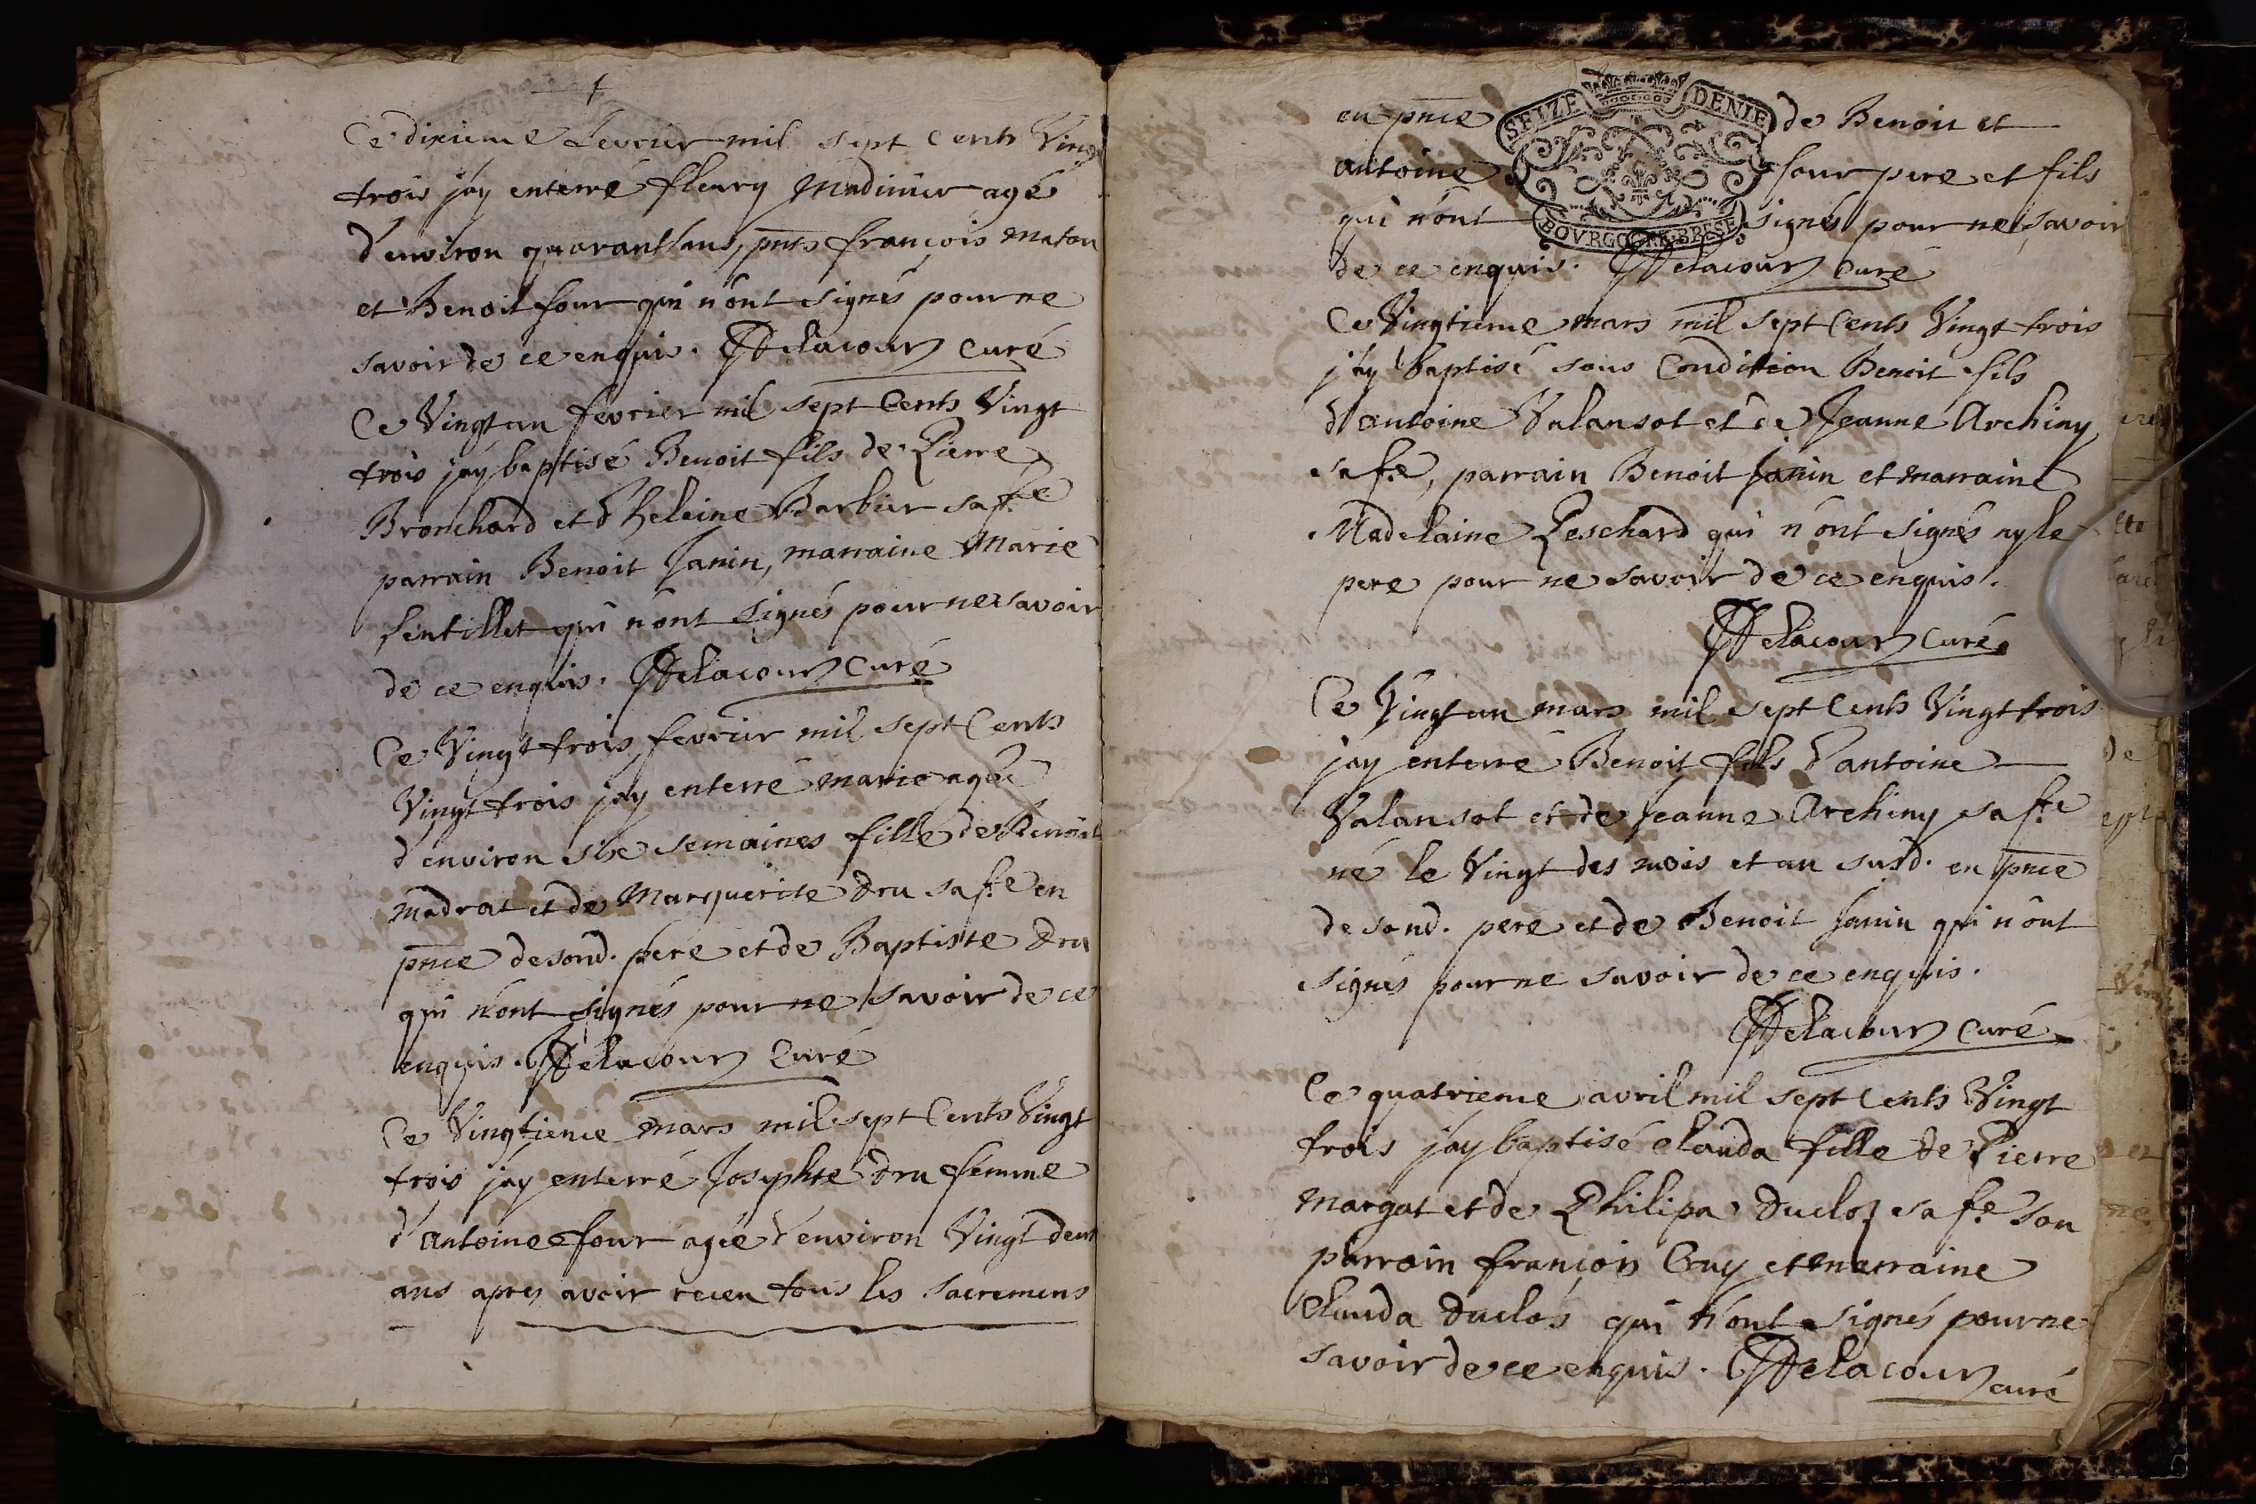 Ce dixieme fevrier mil sept cents Vingt
trois j'ay enterré fleury Madinier agé
d'environ quarant'ans, pnts françois maton
et Benoit four qui n'ont signés pour ne
savoir de ce enquis. Delacour curé
Ce Vingt un fevrier mil sept Cents Vingt
trois j'ay baptisé Benoit fils de Pierre
Bronchard et d'heleine Barbier sa fe
parrain Benoit Janin, marraine Marie
fentillet qui n'ont signés pour ne savoir
de ce enquis. Delacour curé
Ce Vingt trois fevrier mil sept Cents
Vingt trois j'ay enterré marie agée
d'environ six semaines fille de Benoit
madrat et de Marguerite dru sa fe en
pnce de sond. pere et de Baptiste dru
qui n'ont signés pour ne savoir de ce
enquis. Delacour Curé
Ce Vingtieme mars mil sept Cents Vingt
trois j'ay enterré Josephte dru femme
d'antoine four agée d'environ Vingt deux
ans apres avoir receu tous les sacremens
en pnce de Benoit et
antoine four pere et fils
qui n'ont signés pour ne savoir
de ce enquis. Delacour Curé
SEIZE DENIE
BOVRGOGNE BRESSE
Ce Vingtieme mars mil sept Cents Vingt trois
j'ay baptisé sous Condition Benoit fils
d'antoine Valansot et de Jeanne Archiny
sa fe, parrain Benoit Janin et marraine
Madelaine Peschard qui n'ont signés ny le
pere pour ne savoir de ce enquis.
Delacour curé
Ce Vingt un mars mil sept Cents Vingt trois
j'ay enterré Benoit fils d'antoine
Valansot et de Jeanne Archiny sa fe
né le Vingt des mois et an susd. en pnce
de sond. pere et de Benoit Janin qui n'ont
signés pour ne savoir de ce enquis.
Delacour curé
Ce quatrieme avril mil sept Cents Vingt
trois j'ay baptisé Clauda fille de Pierre
Margat et de Philipa Ducloz sa fe son
parrain françois Cruy et marraine
Clauda Duclos qui n'ont signés pour ne
savoir de ce enquis. Delacour
curé